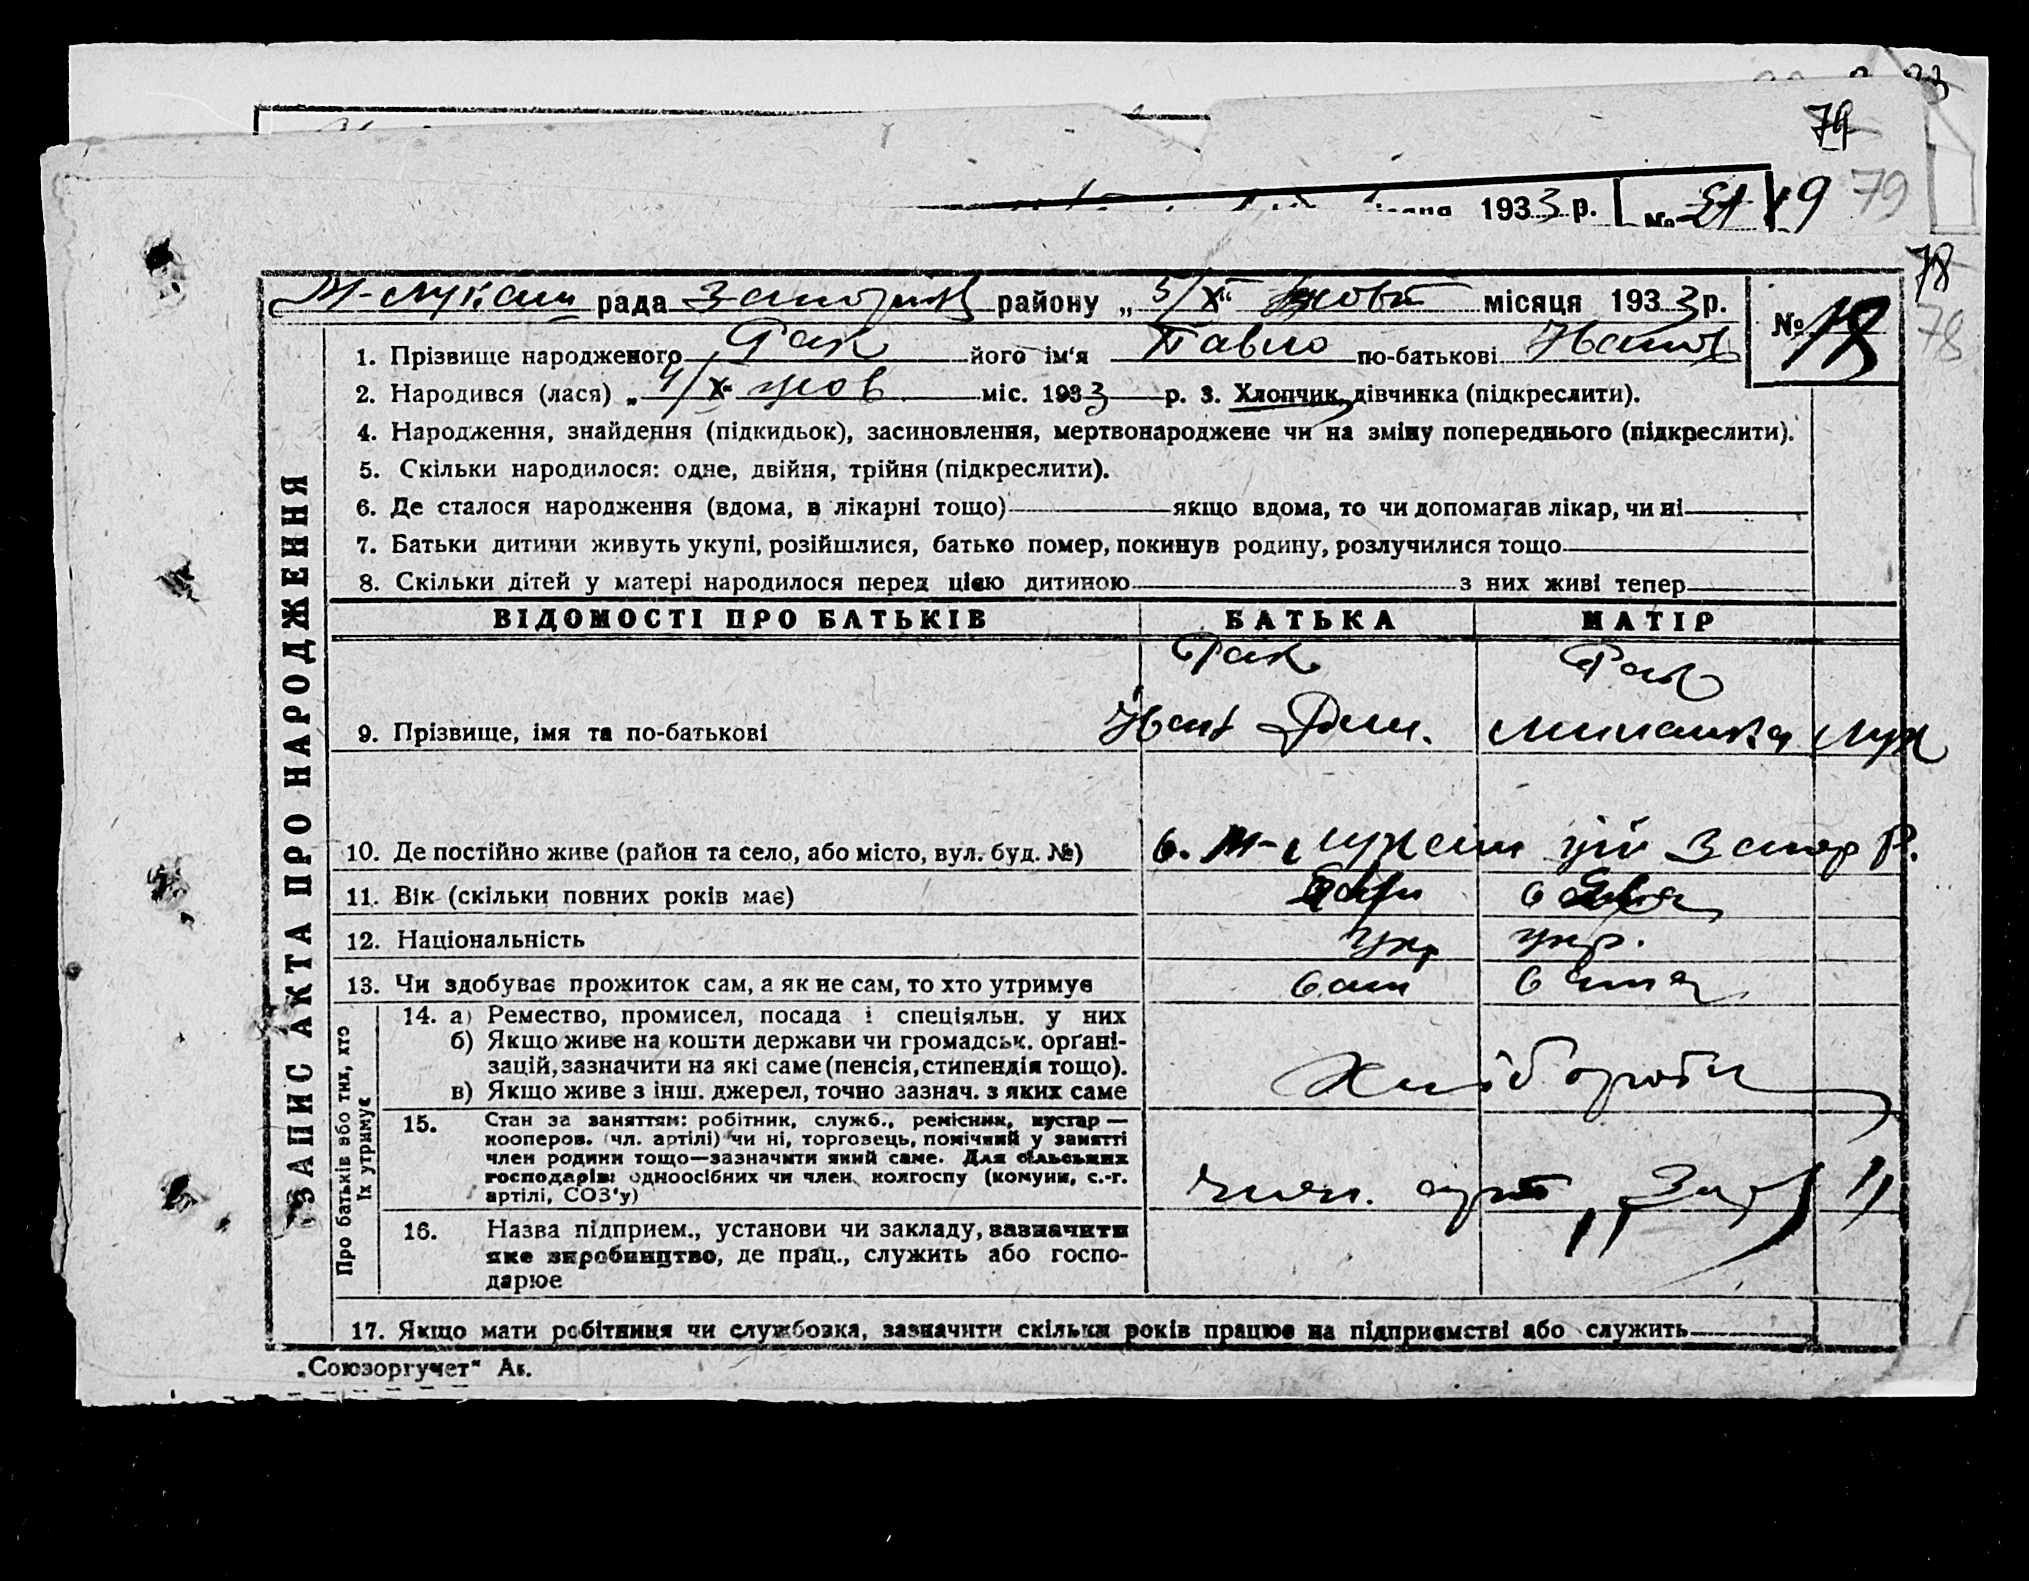 79
1933 р. № 51 79 79
78
М-лукаш рада Запоріж району „ 5/X" жовт місяця 1933 р. № 18 78
1. Прізвище народженого Рак його ім'я Павло по-батькові Іванов
2. Народився (лася) „ 4/X- жов міс. 1933 р. 3. Хлопчик, дівчинка (підкреслити).
4. Народження, знайдення (підкидьок), засиновлення, мертвонароджене чи на зміну попереднього (підкреслити).
5. Скільки народилося: одне, двійня, трійня (підкреслити).
6. Де сталося народження (вдома, в лікарні тощо) якщо вдома, то чи допомагав лікар, чи ні
7. Батьки дитини живуть укупі, розійшлися, батько помер, покинув родину, розлучилися тощо
8. Скільки дітей у матері народилося перед цією дитиною з них живі тепер
ЗАПИС АКТА ПРО НАРОДЖЕННЯ
ВІДОМОСТІ ПРО БАТЬКІВ БАТЬКА МАТІР
Рак Рак
9. Прізвище, імя та по-батькові Іван Дми.
10. Де постійно живе (район та село, або місто, вул. буд. №) с. М-лукаш Запор Р.
11. Вік (скільки повних років має)
12. Національність укр укр.
13. Чи здобуває прожиток сам, а як не сам, то хто утримує сам сама
Про батьків або тих, хто
їх утримує
14. а) Ремество, промисел, посада і спеціяльн. у них
б) Якщо живе на кошти держави чи громадськ. орґані-
зацій, зазначити на які саме (пенсія, стипендія тощо).
в) Якщо живе з інш. джерел, точно зазнач. з яких саме
Хлібороби
15. Стан за заняттям: робітник, служб., ремісник, кустар —
кооперов. (чл. артілі) чи ні, торговець, помічний у занятті
член родини тощо—зазначити який саме. Для сільських
господарів: одноосібних чи член. колгоспу (комуни, с.-г.
артілі, СОЗ'у)
член. арт
16. Назва підприєм., установи чи закладу, зазначити
яке виробництво, де прац., служить або госпо-
дарює
17. Якщо мати робітниця чи службовка, зазначити скільки років працює на підприємстві або служить
„Союзоргучет" Ак.